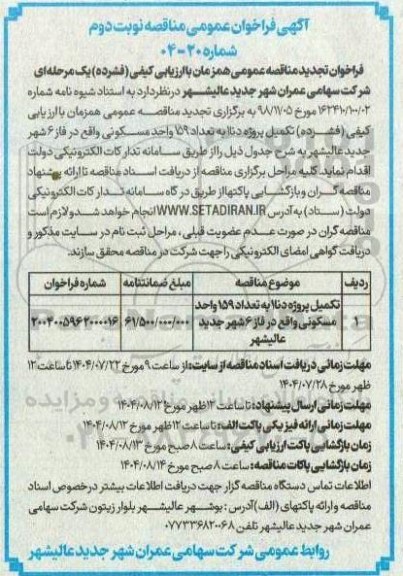 آگهی فراخوان عمومی مناقصه نوبت دوم
شماره ۲۰-۰۴
فراخوان تجدید مناقصه عمومی همزمان با ارزیابی کیفی (فشرده) یک مرحله ای
شرکت سهامی عمران شهر جدید عالیشهر در نظر دارد به استناد شیوه نامه شماره
۱۶۲۴۱۰/۱۰۰/۰۲ مورخ ۹۸/۱۱/۰۵ به برگزاری تجدید مناقصه عمومی همزمان با ارزیابی
کیفی (فشرده) تکمیل پروژه دنا۱ به تعداد ۱۵۹ واحد مسکونی واقع در فاز ۶ شهر
جدید عالیشهر به شرح جدول ذیل را از طریق سامانه تدارکات الکترونیکی دولت
اقدام نماید. کلیه مراحل برگزاری مناقصه از دریافت اسناد مناقصه تا ارائه پیشنهاد
مناقصه گران و بازگشایی پاکتها از طریق درگاه سامانه تدارکات الکترونیکی
دولت (ستاد) به آدرس WWW.SETADIRAN.IR انجام خواهد شد و لازم است
مناقصه گران در صورت عدم عضویت قبلی، مراحل ثبت نام در سایت مذکور و
دریافت گواهی امضای الکترونیکی را جهت شرکت در مناقصه محقق سازند.
ردیف موضوع مناقصه مبلغ ضمانتنامه شماره فراخوان
تکمیل پروژه دنا۱ به تعداد ۱۵۹ واحد
۱ مسکونی واقع در فاز ۶ شهر جدید ۶۱/۵۰۰/۰۰۰/۰۰۰ ۲۰۰۴۰۰۵۹۶۲۰۰۰۰۱۶
عالیشهر
مهلت زمانی دریافت اسناد مناقصه از سایت: از ساعت ۹ مورخ ۱۴۰۴/۰۷/۲۲ تا ساعت ۱۲
ظهر مورخ ۱۴۰۴/۰۷/۲۸
مهلت زمانی ارسال پیشنهاد: تا ساعت ۱۲ ظهر مورخ ۱۴۰۴/۰۸/۱۲
مهلت زمانی ارائه فیزیکی پاکت الف: تا ساعت ۱۲ ظهر مورخ ۱۴۰۴/۰۸/۱۲
زمان بازگشایی پاکت ارزیابی کیفی: ساعت ۸ صبح مورخ ۱۴۰۴/۰۸/۱۳
زمان بازگشایی پاکات مناقصه: ساعت ۸ صبح مورخ ۱۴۰۴/۰۸/۱۴
اطلاعات تماس دستگاه مناقصه گزار جهت دریافت اطلاعات بیشتر در خصوص اسناد
مناقصه و ارائه پاکتهای (الف) آدرس: بوشهر عالیشهر بلوار زیتون شرکت سهامی
عمران شهر جدید عالیشهر تلفن ۰۷۷۳۳۶۸۲۰۶۸
روابط عمومی شرکت سهامی عمران شهر جدید عالیشهر